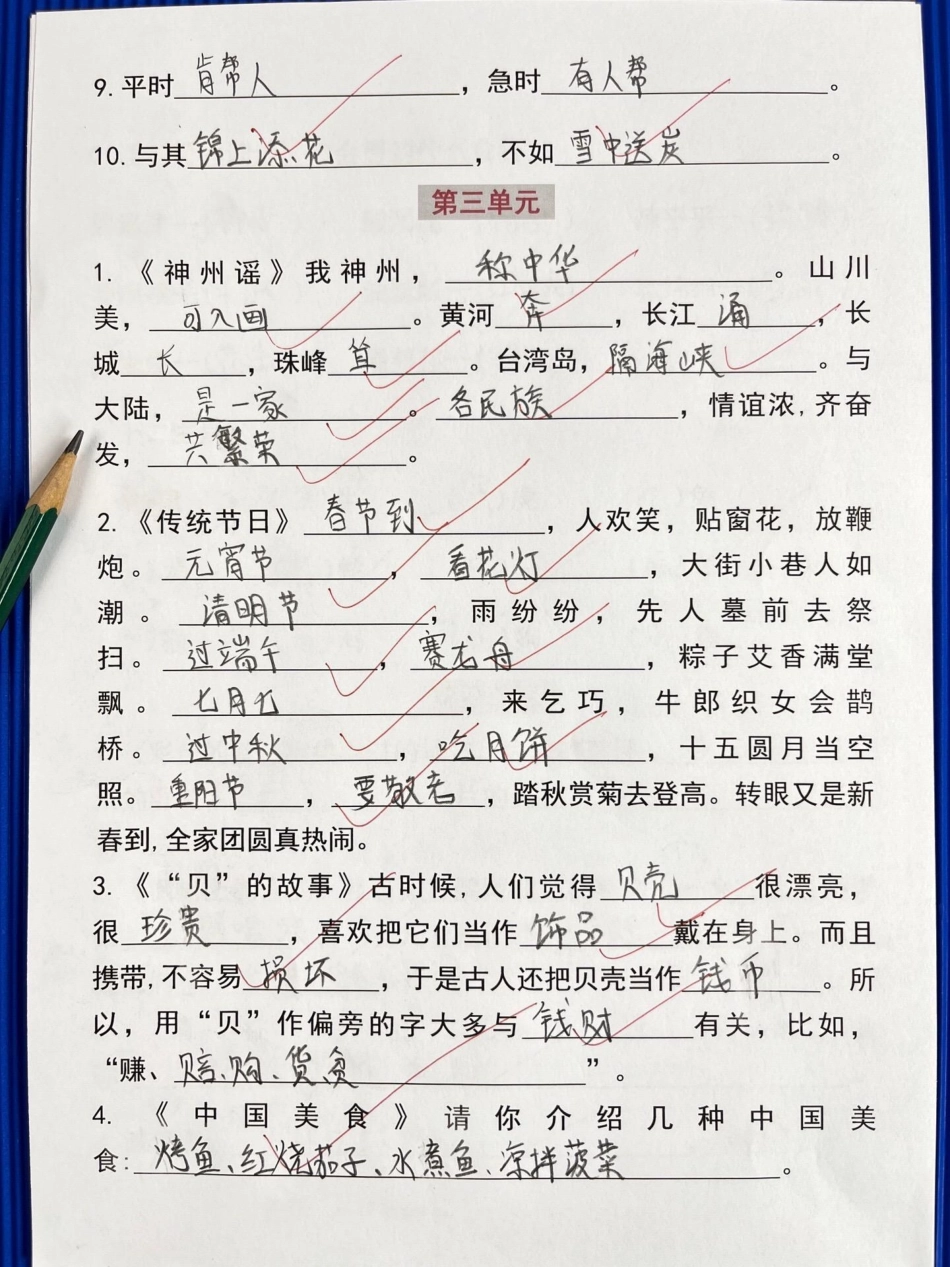 9.平时肯帮人，急时有人帮。
10.与其锦上添花，不如雪中送炭。
第三单元
1.《神州谣》我神州，称中华。山川
美，可入画。黄河奔，长江涌，长
城长，珠峰耸。台湾岛，隔海峡。与
大陆，是一家。各民族，情谊浓,齐奋
发，共繁荣。
2.《传统节日》春节到，人欢笑，贴窗花，放鞭
炮。元宵节，看花灯，大街小巷人如
潮。清明节，雨纷纷，先人墓前去祭
扫。过端午，赛龙舟，粽子艾香满堂
飘。七月七，来乞巧，牛郎织女会鹊
桥。过中秋，吃月饼，十五圆月当空
照。重阳节，要敬老，踏秋赏菊去登高。转眼又是新
春到,全家团圆真热闹。
3.《“贝”的故事》古时候,人们觉得贝壳很漂亮，
很珍贵，喜欢把它们当作饰品戴在身上。而且
携带,不容易损坏，于是古人还把贝壳当作钱币。所
以，用“贝”作偏旁的字大多与钱财有关，比如，
“赚、赔、购、货、贪”。
4.《中国美食》请你介绍几种中国美
食:烤鱼、红烧茄子、水煮鱼、凉拌菠菜。